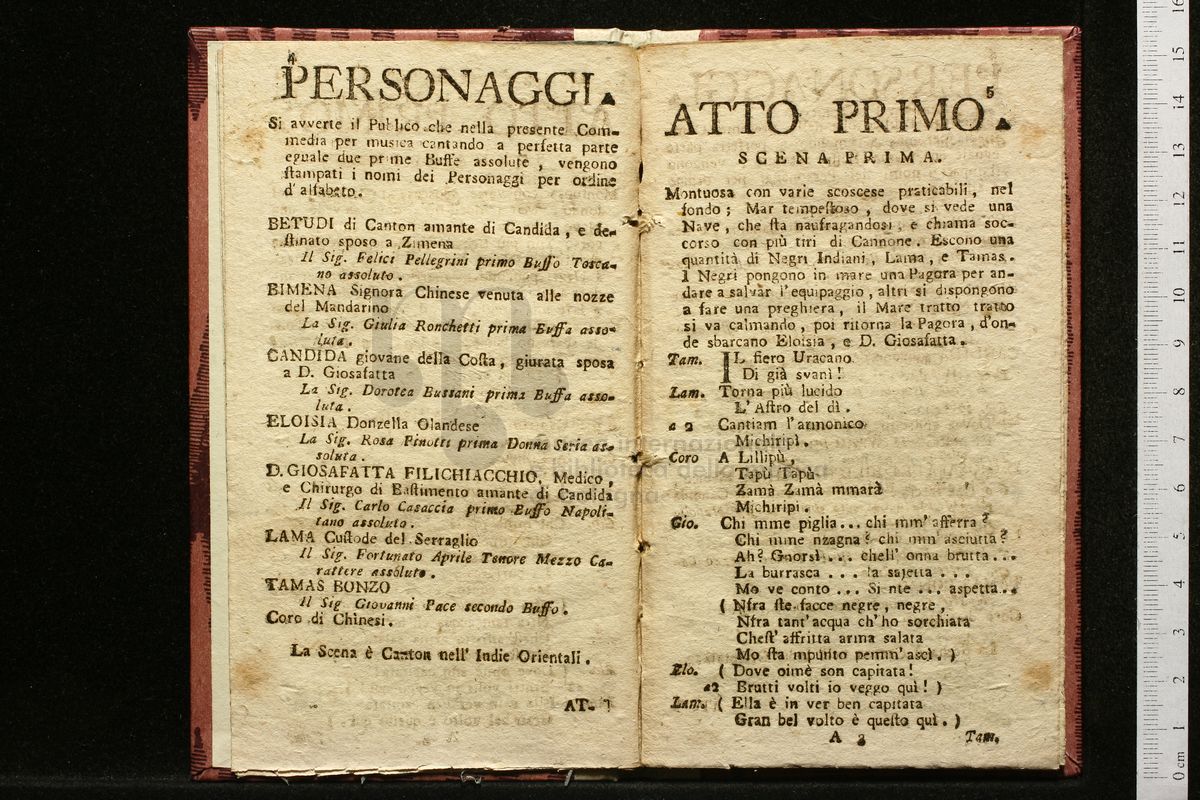 4
PERSONAGGI.
Si avverte il Publico che nella presente Com-
media per musica cantando a perfetta parte
eguale due prime Buffe assolute, vengono
stampati i nomi dei Personaggi per ordine
d'alfabeto.
BETUDI di Canton amante di Candida, e de-
stinato sposo a Zimena
Il Sig. Felici Pellegrini primo Buffo Tosca-
no assoluto.
BIMENA Signora Chinese venuta alle nozze
del Mandarino
La Sig. Giulia Ronchetti prima Buffa asso-
luta.
CANDIDA giovane della Costa, giurata sposa
a D. Giosafatta
La Sig. Dorotea Bussani prima Buffa asso-
luta.
ELOISIA Donzella Olandese
La Sig. Rosa Pinotti prima Donna Seria as-
soluta.
D. GIOSAFATTA FILICHIACCHIO, Medico,
e Chirurgo di Bastimento amante di Candida
Il Sig. Carlo Casaccia primo Buffo Napoli-
tano assoluto.
LAMA Custode del Serraglio
Il Sig. Fortunato Aprile Tenore Mezzo Ca-
rattere assoluto.
TAMAS BONZO
Il Sig Giovanni Pace secondo Buffo.
Coro di Chinesi.
La Scena è Canton nell' Indie Orientali.
AT-
5
ATTO PRIMO.
SCENA PRIMA.
Montuosa con varie scoscese praticabili, nel
fondo; Mar tempestoso, dove si vede una
Nave, che sta naufragandosi, e chiama soc-
corso con più tiri di Cannone. Escono una
quantità di Negri Indiani, Lama, e Tamas.
I Negri pongono in mare una Pagora per an-
dare a salvar l'equipaggio, altri si dispongono
a fare una preghiera, il Mare tratto tratto
si va calmando, poi ritorna la Pagora, d'on-
de sbarcano Eloisia, e D. Giosafatta.
Tam. IL fiero Uracano
Di già svanì!
Lam. Torna più lucido
L'Astro del dì.
a 2 Cantiam l'armonico
Michiripì.
Coro A Lillipù,
Tapù Tapù
Zamà Zamà mmarà
Michiripi.
Gio. Chi mme piglia... chi mm' afferra?
Chi mme nzagna? chi mm' asciutta?
Ah? Gnorsì... chell' onna brutta...
La burrasca... la sajetta...
Mo ve conto... Si nte... aspetta...
(Nfra ste facce negre, negre,
Nfra tant'acqua ch'ho sorchiata
Chest' affritta arma salata
Mo sta mpunto pemm' ascì.)
Elo. (Dove oimè son capitata!
a2 Brutti volti io veggo quì!)
Lam. (Ella è in ver ben capitata
Gran bel volto è questo quì.)
A 3 Tam.